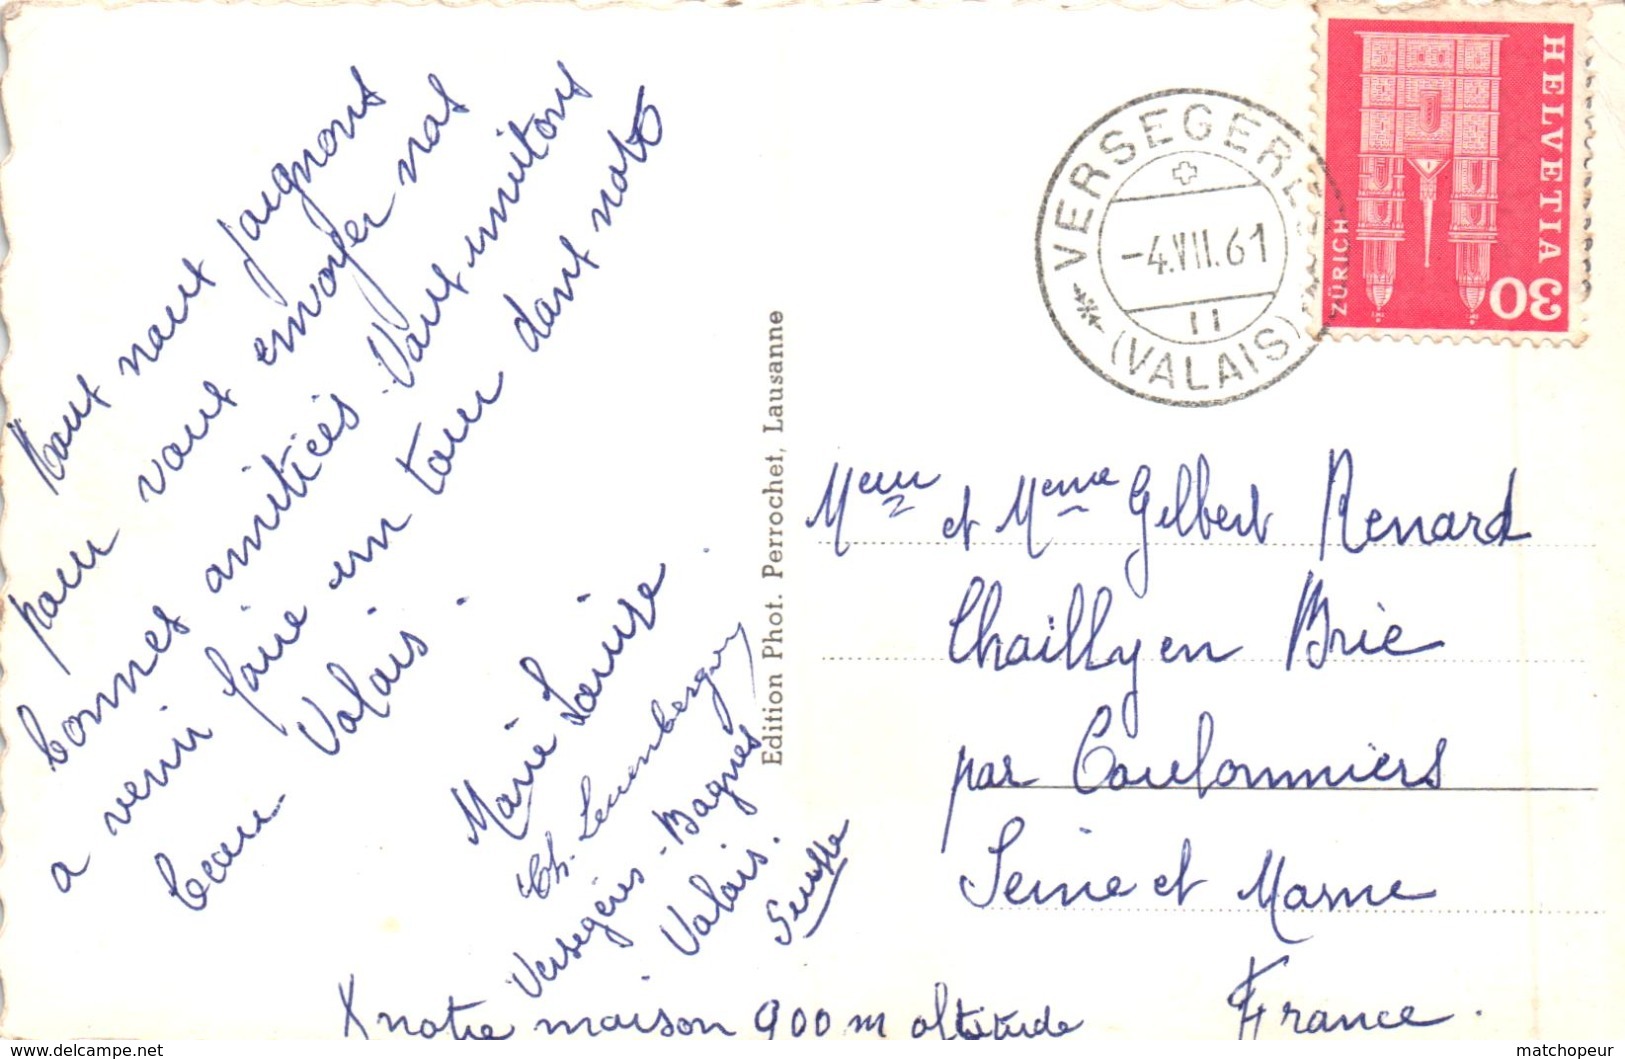 Tous nous joignons
pour vous envoyer nos
bonnes amitiées. Vous invitons
a venir faire un tour dans notre
beau Valais.
Marie Louise.
Ch. Leuenberger
Versegères - Bagnes
Valais.
Suisse
X notre maison 900 m altitude
Edition Phot. Perrochet, Lausanne
VERSEGERES
-4.VII.61
(VALAIS)
HELVETIA 30
ZÜRICH
Meur et Meme Gilbert Renard
Chailly en Brie
par Coulommiers
Seine et Marne
France.
https://www.delcampe.net
matchopeur